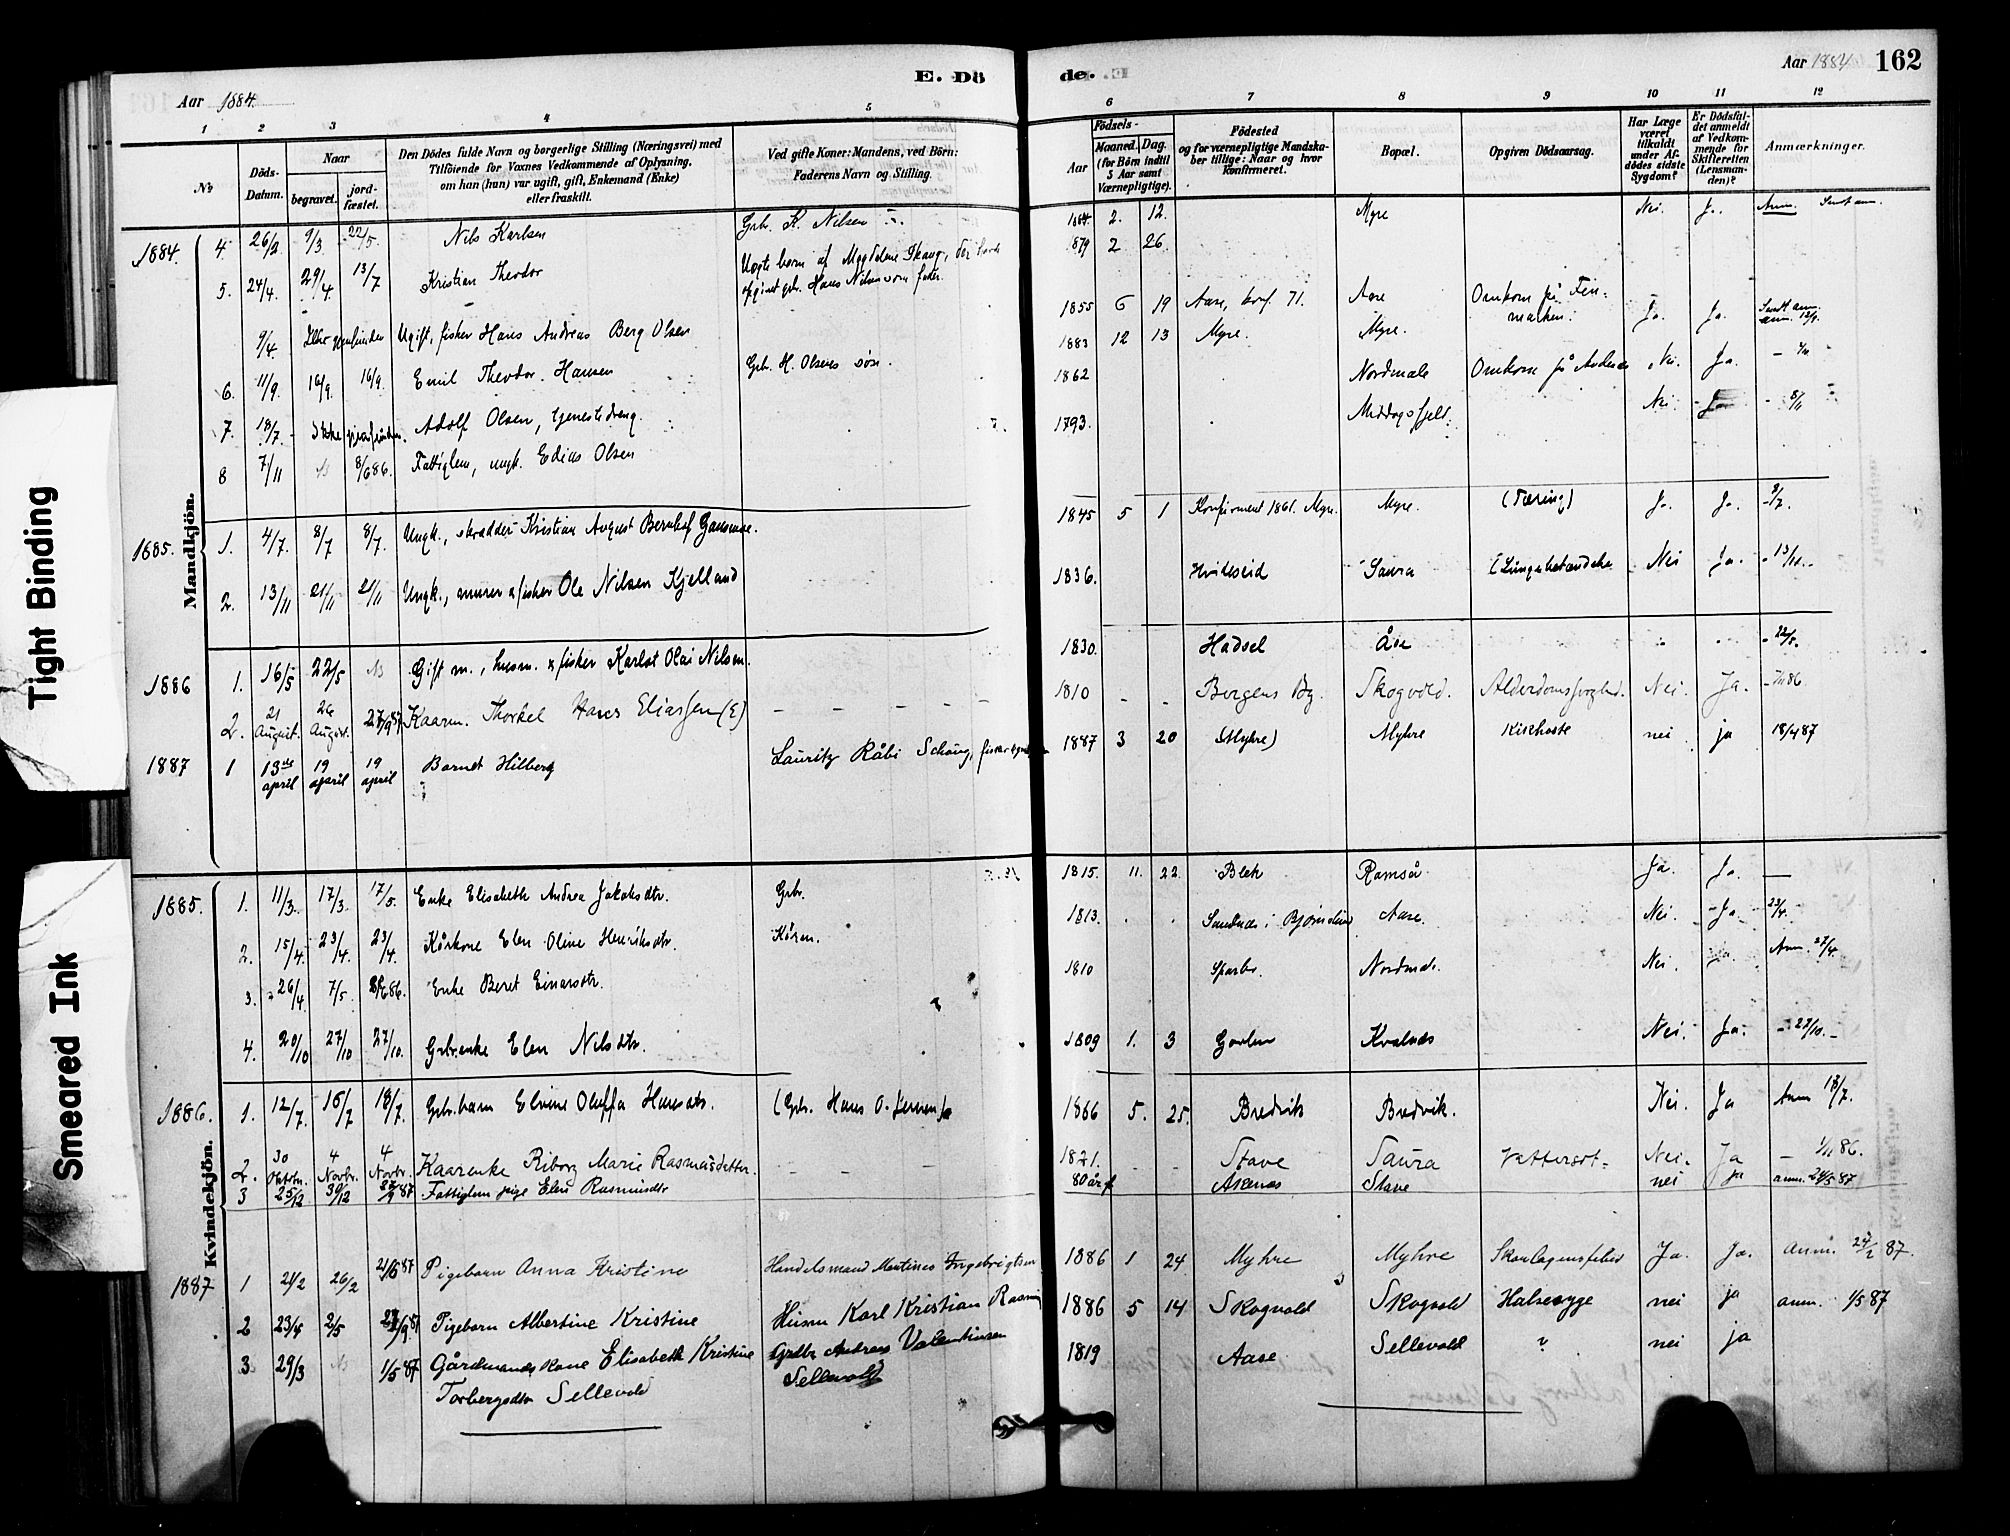 E. Dö de.
Aar 1884.
Aar 1884 162
1 2 3 4 5 6 7 8 9 10 11 12
No
Döds-
Datum.
Naar
begravet.
jord-
fæstet.
Den Dödes fulde Navn og borgerlige Stilling (Næringsvei) med
Tilföiende for Voxnes Vedkommende af Oplysning,
om han (hun) var ugift, gift, Enkemand (Enke)
eller fraskilt.
Ved gifte Koner: Mandens, ved Börn:
Faderens Navn og Stilling.
Födsels-
Aar
Maaned. Dag.
(for Börn indtil
5 Aar samt
Værnepligtige).
Födested
og for værnepligtige Mandska-
ber tillige: Naar og hvor
konfirmeret.
Bopæl.
Opgiven Dödsaarsag.
Har Læge
været
tilkaldt
under Af-
dödes sidste
Sygdom?
Er Dödsfal-
det anmeldt
af Vedkom-
mende for
Skifteretten
(Lensman-
den)?
Anmærkninger.
Mandkjön.
1884. 4. 26/2 9/3 22/5 Nils Karlsen Gbr. K. Nilsen 1884 2. 12. Myre Nei. Ja.
5. 24/4. 29/4. 13/7 Kristian Theodor Uægte barn af Magdelene Skaug, der havde
opgivet gbr. Hans Nilsen som fader. 1879 2 26
9/4 Ikke gjenfunden Ugift, fisker Hans Andreas Berg Olsen 1855 6 19 Aase, konf. 71. Aase Omkom på Fin-
marken. Ja. Ja.
6. 11/9. 16/9. 16/9. Emil Theodor Hansen Gbr. H. Olsens søn. 1883 12 13 Myre. Myre.
7. 18/7. Ikke gjenfunden. Adolf Olsen, tjenestedreng. 1862 Nordmæle Omkom på Andenes Nei. Ja.
8 7/11 8/6 86. Fattiglem, ungk. Edias Olsen 1793. Middagsfjeld. Nei. Ja.
1885. 1. 4/7. 8/7 8/7. Ungk., skrædder Kristian August Bernhof 1845 5 1 Konfirmeret 1861. Myre. Myre. (Tæring) Ja. Ja. 9/7.
2. 13/11 21/11 21/11 Ungk., murer & fisker Ole Nilsen Kjelland 1836. Hviteseid Saura (Lungebetændelse Nei Ja. 13/11.
1886 1. 16/5 22/5 Gift m., husm. & fisker Karlot Olai Nilsen. 1830. Hadsel Åse 22/5.
2. 21 August. 26 August. 27/9 87 Kaarm. Thorkel Hans Eliassen (E) 1810 Bergens By. Skogvold. Alderdomssvaghed. Nei. Ja. 7/11 86
1887 1 13de april 19 april 19 april Bernt Hilberg Lauritz Råbi Schaug, 1887 3 20 (Myhre) Myhre Kikhoste nei ja 18/4 87
Kvindekjön.
1885. 1. 11/3. 17/3. 17/5. Enke Elisabeth Andrea Jakobsdtr. Gbr. 1815. 11. 22. Bleik Ramså Ja. Ja.
2. 15/4. 23/4. 23/4. Kårkone Elen Oline Henriksdtr. Kårm. 1813. Sandnes i Bjørnskind Aase. Nei. Ja. 23/4.
3. 26/4. 7/5. 8/6 86. Enke Beret Einarsdtr. 1810 Sparbu. Nordmæ. Nei. Ja. Anm. 27/4.
4. 20/10 27/10 27/10. Gbr.enke Elen Nilsdtr. 1809 1. 3 Kvalnæs Nei. Ja. 27/10.
1886. 1. 12/7. 18/7 18/7. Gbr.barn Elvine Oluffa Hansdtr. (Gbr. Hans O. Jensen) 1866 5. 25. Bredvik Bredvik. Nei. Ja Anm 18/7.
2. 30 Oktbr. 4 Novbr. 4 Novbr. Kaarenke Riborg Marie Rasmusdatter. 1821. Stave Saura Vattersot. Nei. Ja 1/11 86.
3 25/12 30/12 27/9 87 Fattiglem pige Elen Rasmusdtr 80 år g. Akenæs Stave nei ja anm. 24/5 87
1887 1 21/2 26/2 21/6 87 Pigebarn Anna Kristine Handelsmand Martines Ingebrigtsen 1886 1 24 Myhre Myhre Skarlagensfeber Ja. Ja. Anm. 27/2 87.
2 23/4 2/5 27/9 87 Pigebarn Albertine Kristine Husm Karl Kristian Rasmu 1886 5 14 Skogvold Skogvold Halsesyge nei ja anm. 1/5 87
3 29/3 1/5 87 Gårdmandskone Elisabeth Kristine
Torbergsdtr Sellevold Grdbr Andreas Valentinsen
Sellevold 1819 Aase Sellevold ? nei ja
Tight Binding
Smeared Ink